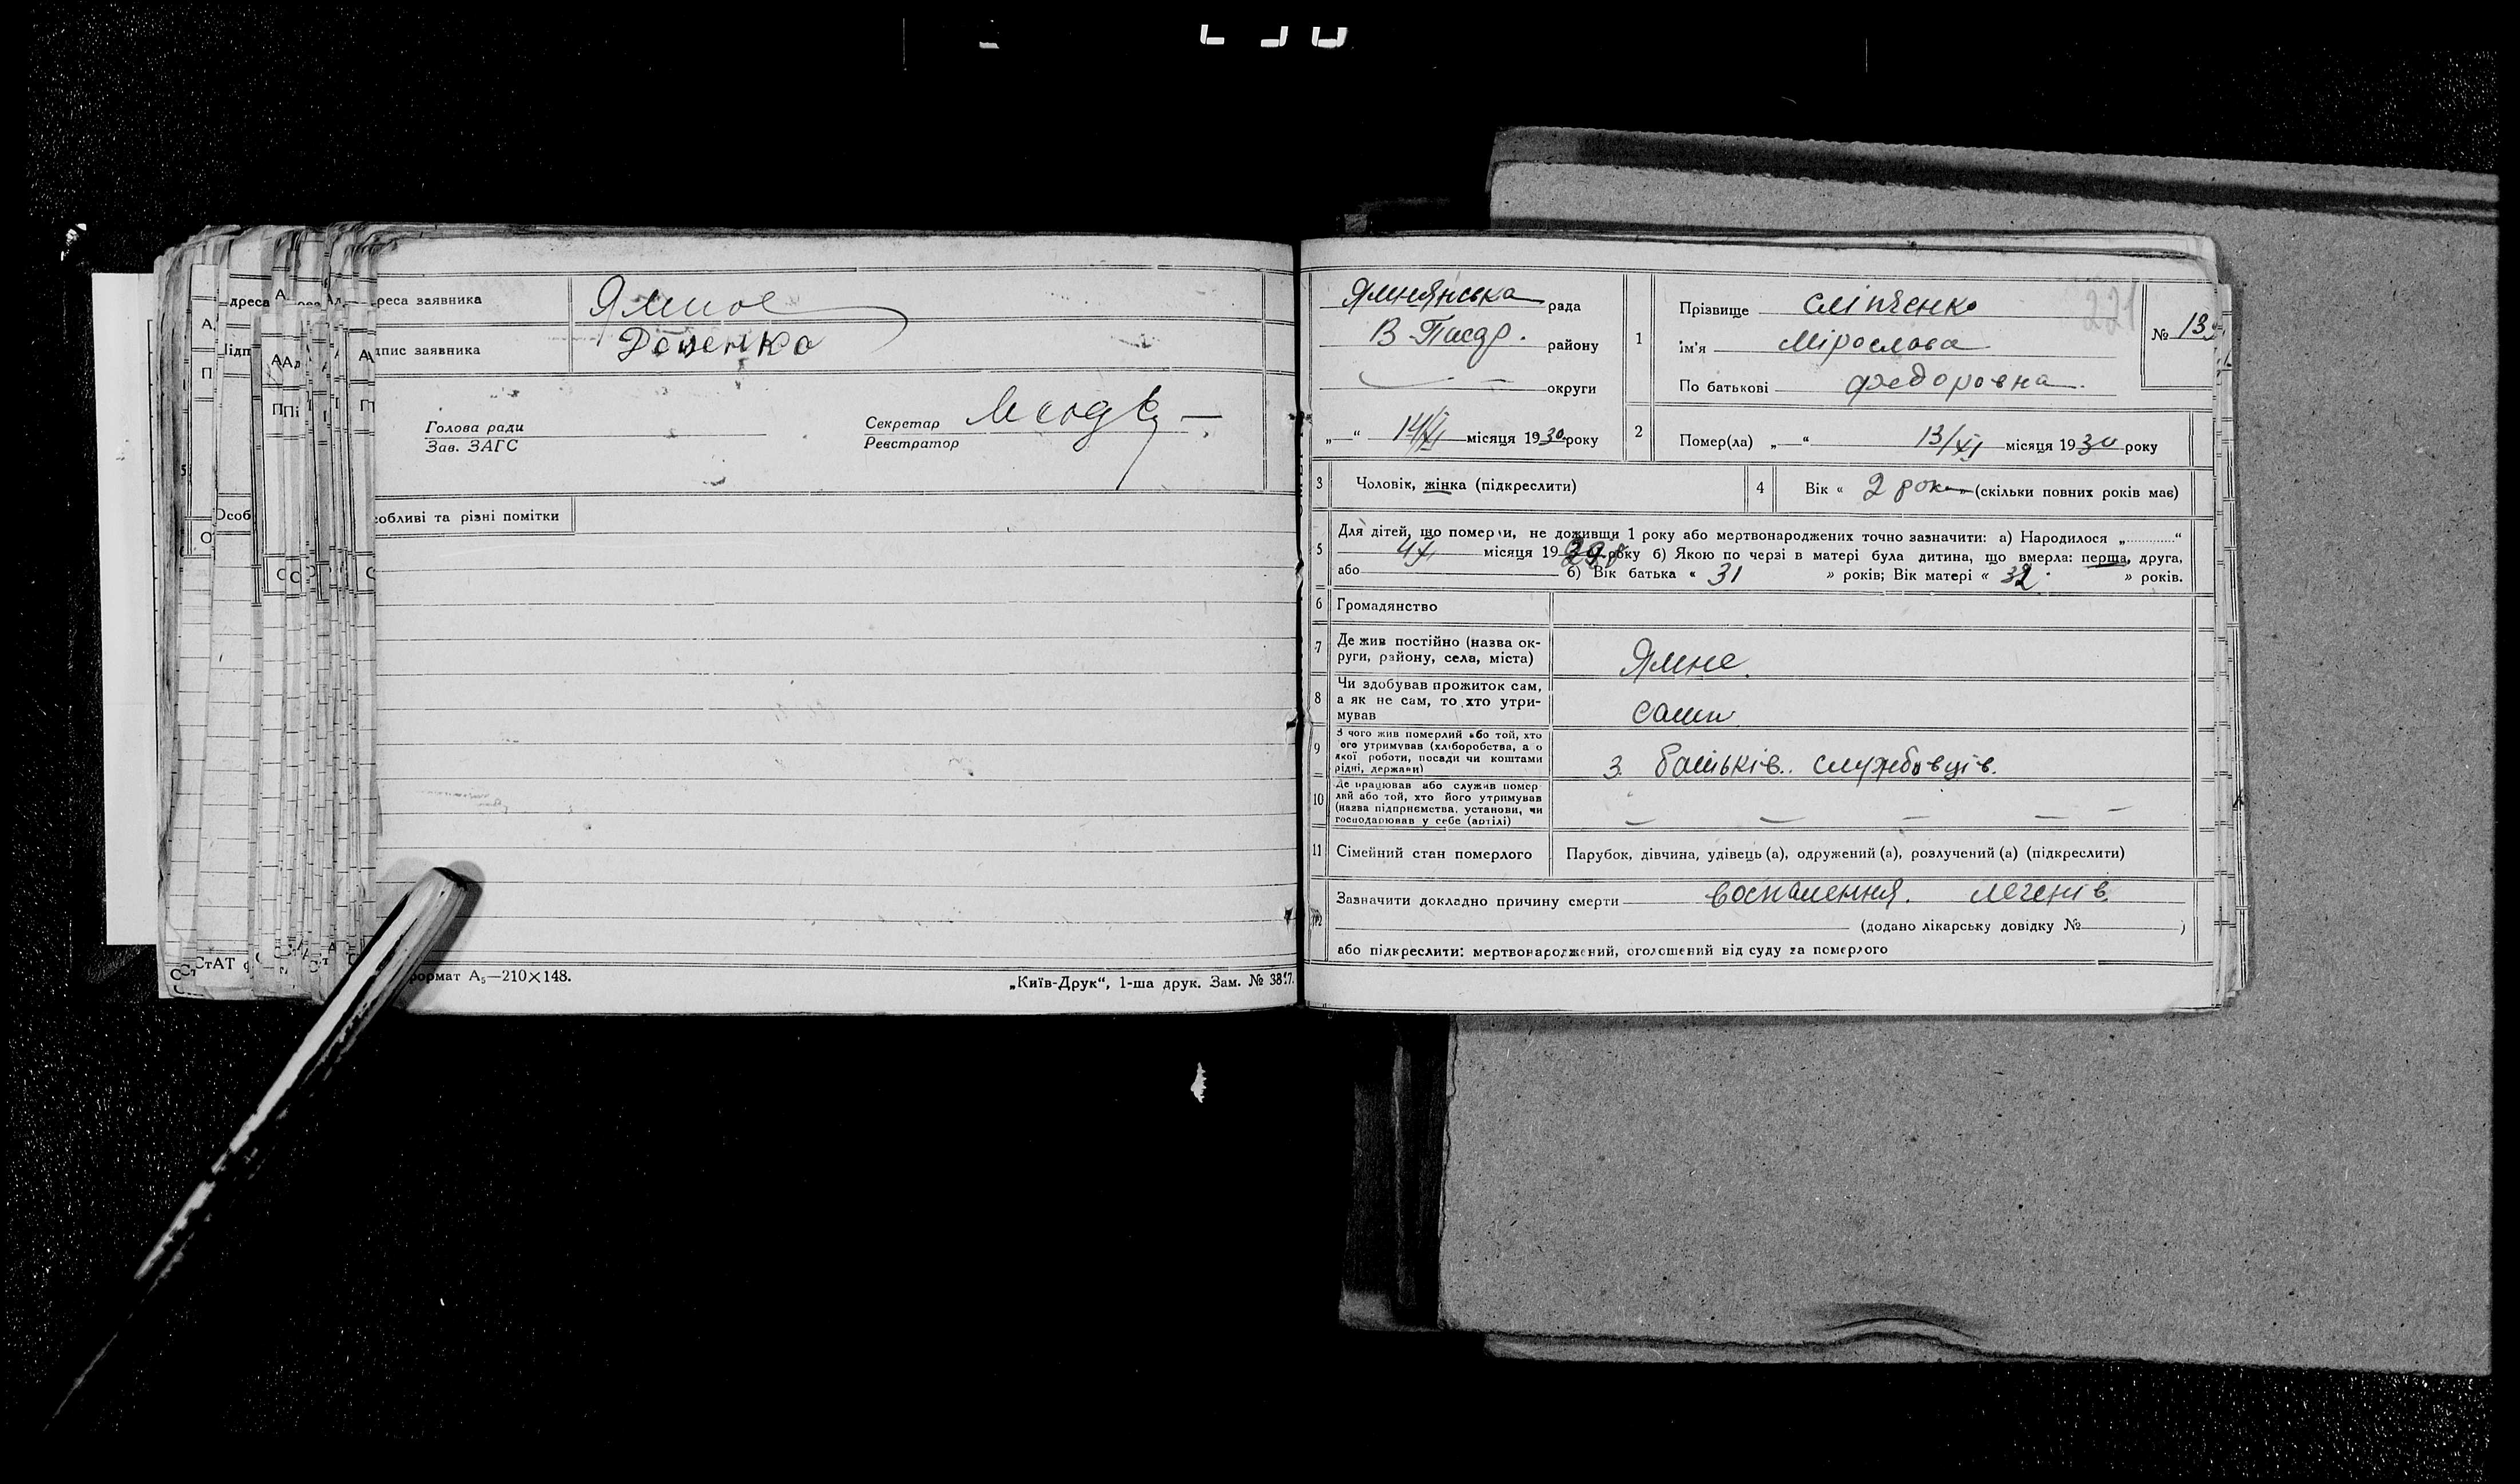 реса заявника Ямное
дпис заявника Доценко
Голова ради
Зав. ЗАГС
Секретар
Реєстратор
собливі та різні помітки
формат А₅—210×148.
„Київ-Друк“, 1-ша друк. Зам. №
Ямнянська рада
В Писар. району
округи
„—“ 14/XI місяця 1930 року
1
Прізвище Сліпченко
ім'я Мірослава
По батькові Федоровна
221
№ 13
2
Помер(ла) „—“ 13/XI місяця 1930 року
3 Чоловік, жінка (підкреслити)
4 Вік « 2 рок » (скільки повних років має)
5 Для дітей, що померли, не доживши 1 року або мертвонароджених точно зазначити: а) Народилося „............“
місяця 19 року б) Якою по черзі в матері була дитина, що вмерла: перша, друга,
або б) Вік батька « 31 » років; Вік матері « 32 » років.
6 Громадянство
7 Де жив постійно (назва ок-
руги, району, села, міста)
Ямне.
8 Чи здобував прожиток сам,
а як не сам, то хто утри-
мував
9 З чого жив померлий або той, хто
ого утримував (хліборобства, а о
якої роботи, посади чи коштами
рідні, держави)
З батьків. службовців.
10 Де працював або служив помер
лий або той, хто його утримував
(назва підприємства, установи, чи
господарював у себе (артілі)
11 Сімейний стан померлого
Парубок, дівчина, удівець (а), одружений (а), розлучений (а) (підкреслити)
Зазначити докладно причину смерти воспалення. легенів.
(додано лікарську довідку № )
або підкреслити: мертвонароджений, оголошений від суду за померлого